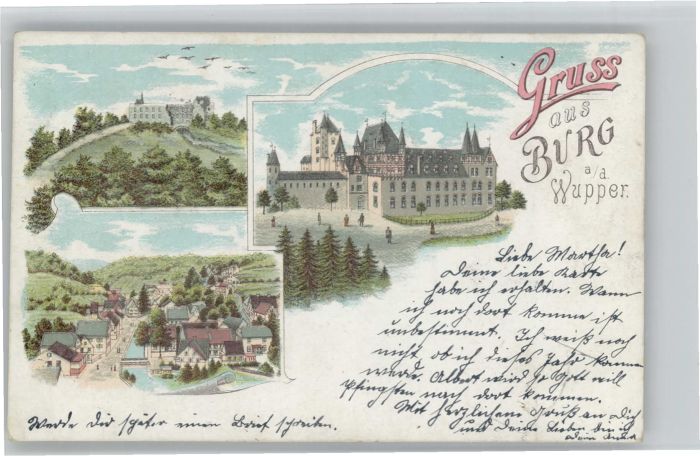 Gruss
aus
BURG
a/d
Wupper.
Liebe Martha!
Deine liebe Karte
habe ich erhalten. Wann
ich noch dort komme ist
unbestimmt. Ich weiß noch
nicht ob ich dieses Jahr kommen
werde. Albert wird so Gott will
Pfingsten nach dort kommen.
Mit herzlichem Gruß an Dich
und Deine Lieben bin ich
Deine
Werde Dir später einen Brief schreiben.